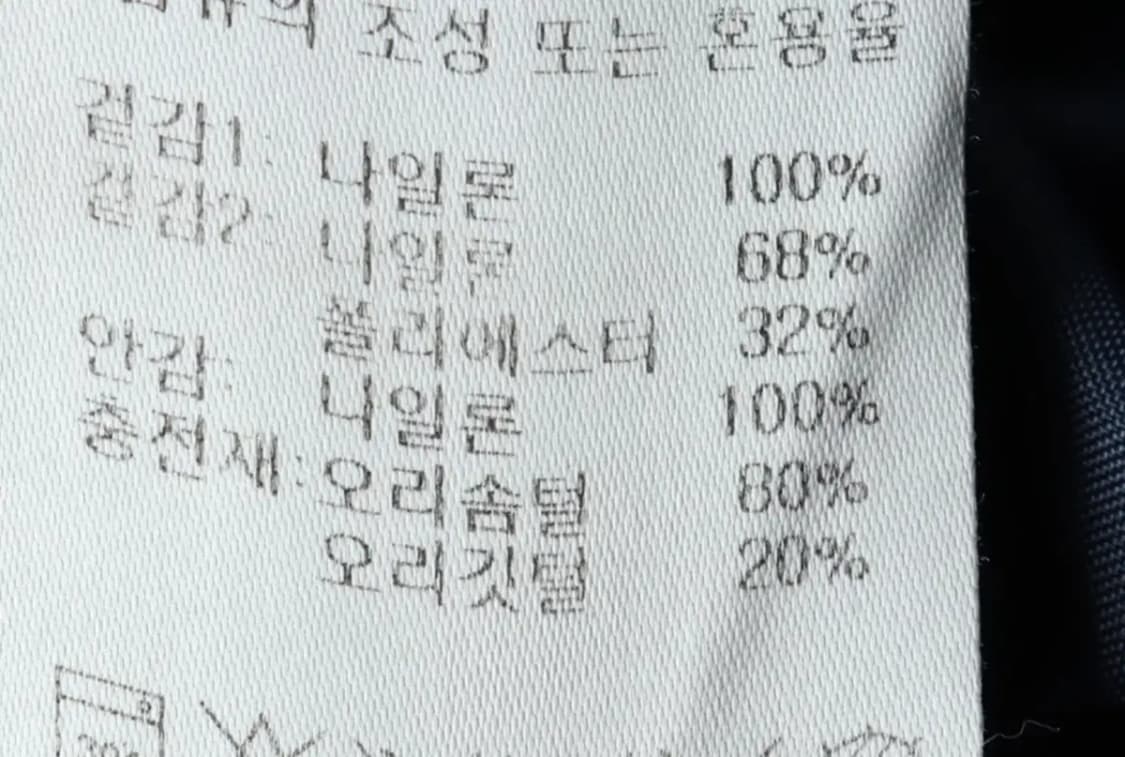 조성 또는 혼용율
겉감1: 나일론 100%
겉감2: 나일론 68%
폴리에스터 32%
안감: 나일론 100%
충전재: 오리솜털 80%
오리깃털 20%